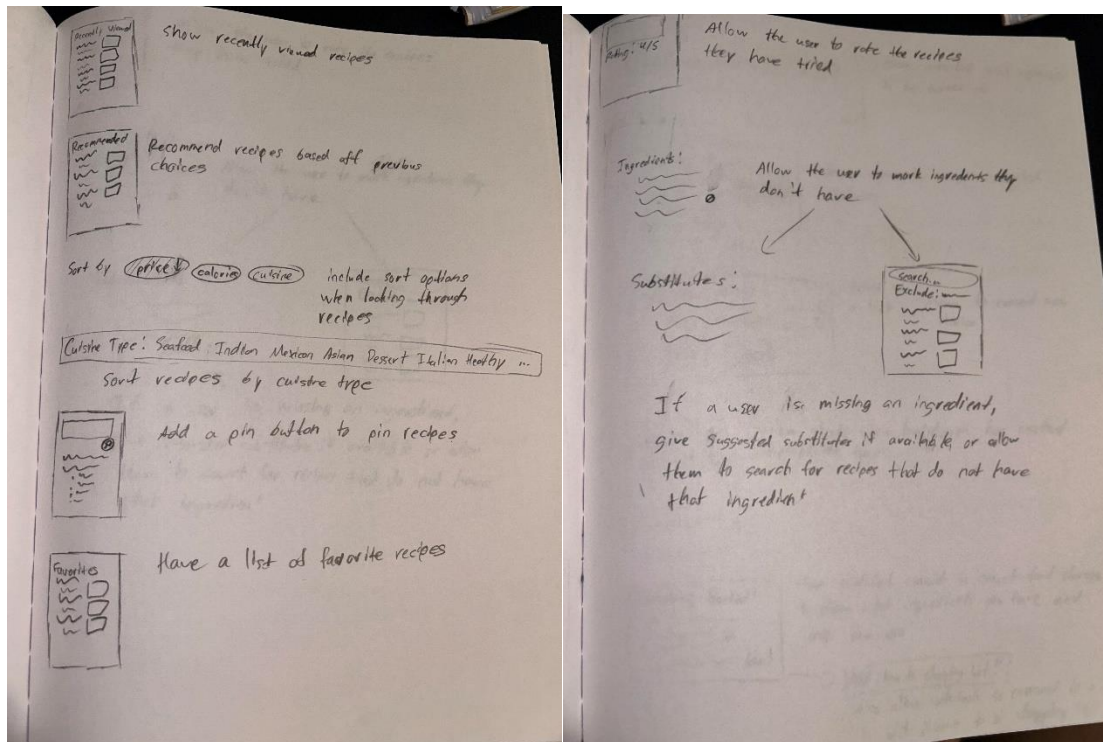 Recently Viewed
Show recently viewed recipes
Recommended
Recommend recipes based off previous
choices
Sort by price calories cuisine
include sort options
when looking through
recipes
Cuisine Type: Seafood Indian Mexican Asian Dessert Italian Healthy ...
Sort recipes by cuisine type
Add a pin button to pin recipes
Favorites
Have a list of favorite recipes
Rating: 4/5
Allow the user to rate the recipes
they have tried
Ingredients:
Allow the user to mark ingredents they
don't have
Substitutes:
Search...
Exclude:
If a user is missing an ingredient,
give suggested substitutes if available, or allow
them to search for recipes that do not have
that ingredient